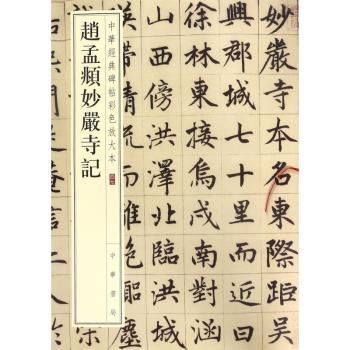 妙嚴寺本名東際距吳
興郡城七十里而近曰
徐林東接烏戍南對涵
山西傍洪澤北臨洪城
帶清流而囂塵
中華經典碑帖彩色放大本
趙孟頫妙嚴寺記
中華書局